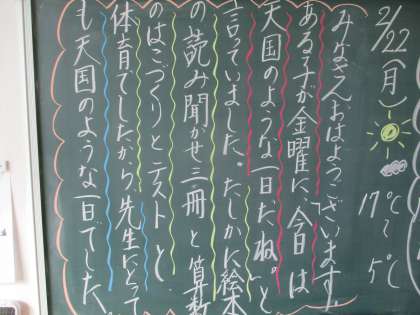 2/22(月)
17℃〜5℃
みなさんおはようございます!
ある子が金曜に、「今日は
天国のような一日だね。」と
言っていました。たしかに絵本
の読み聞かせ三冊と算数
のはこづくりとテストと
体育でしたから、先生にとって
も天国のような一日でした。